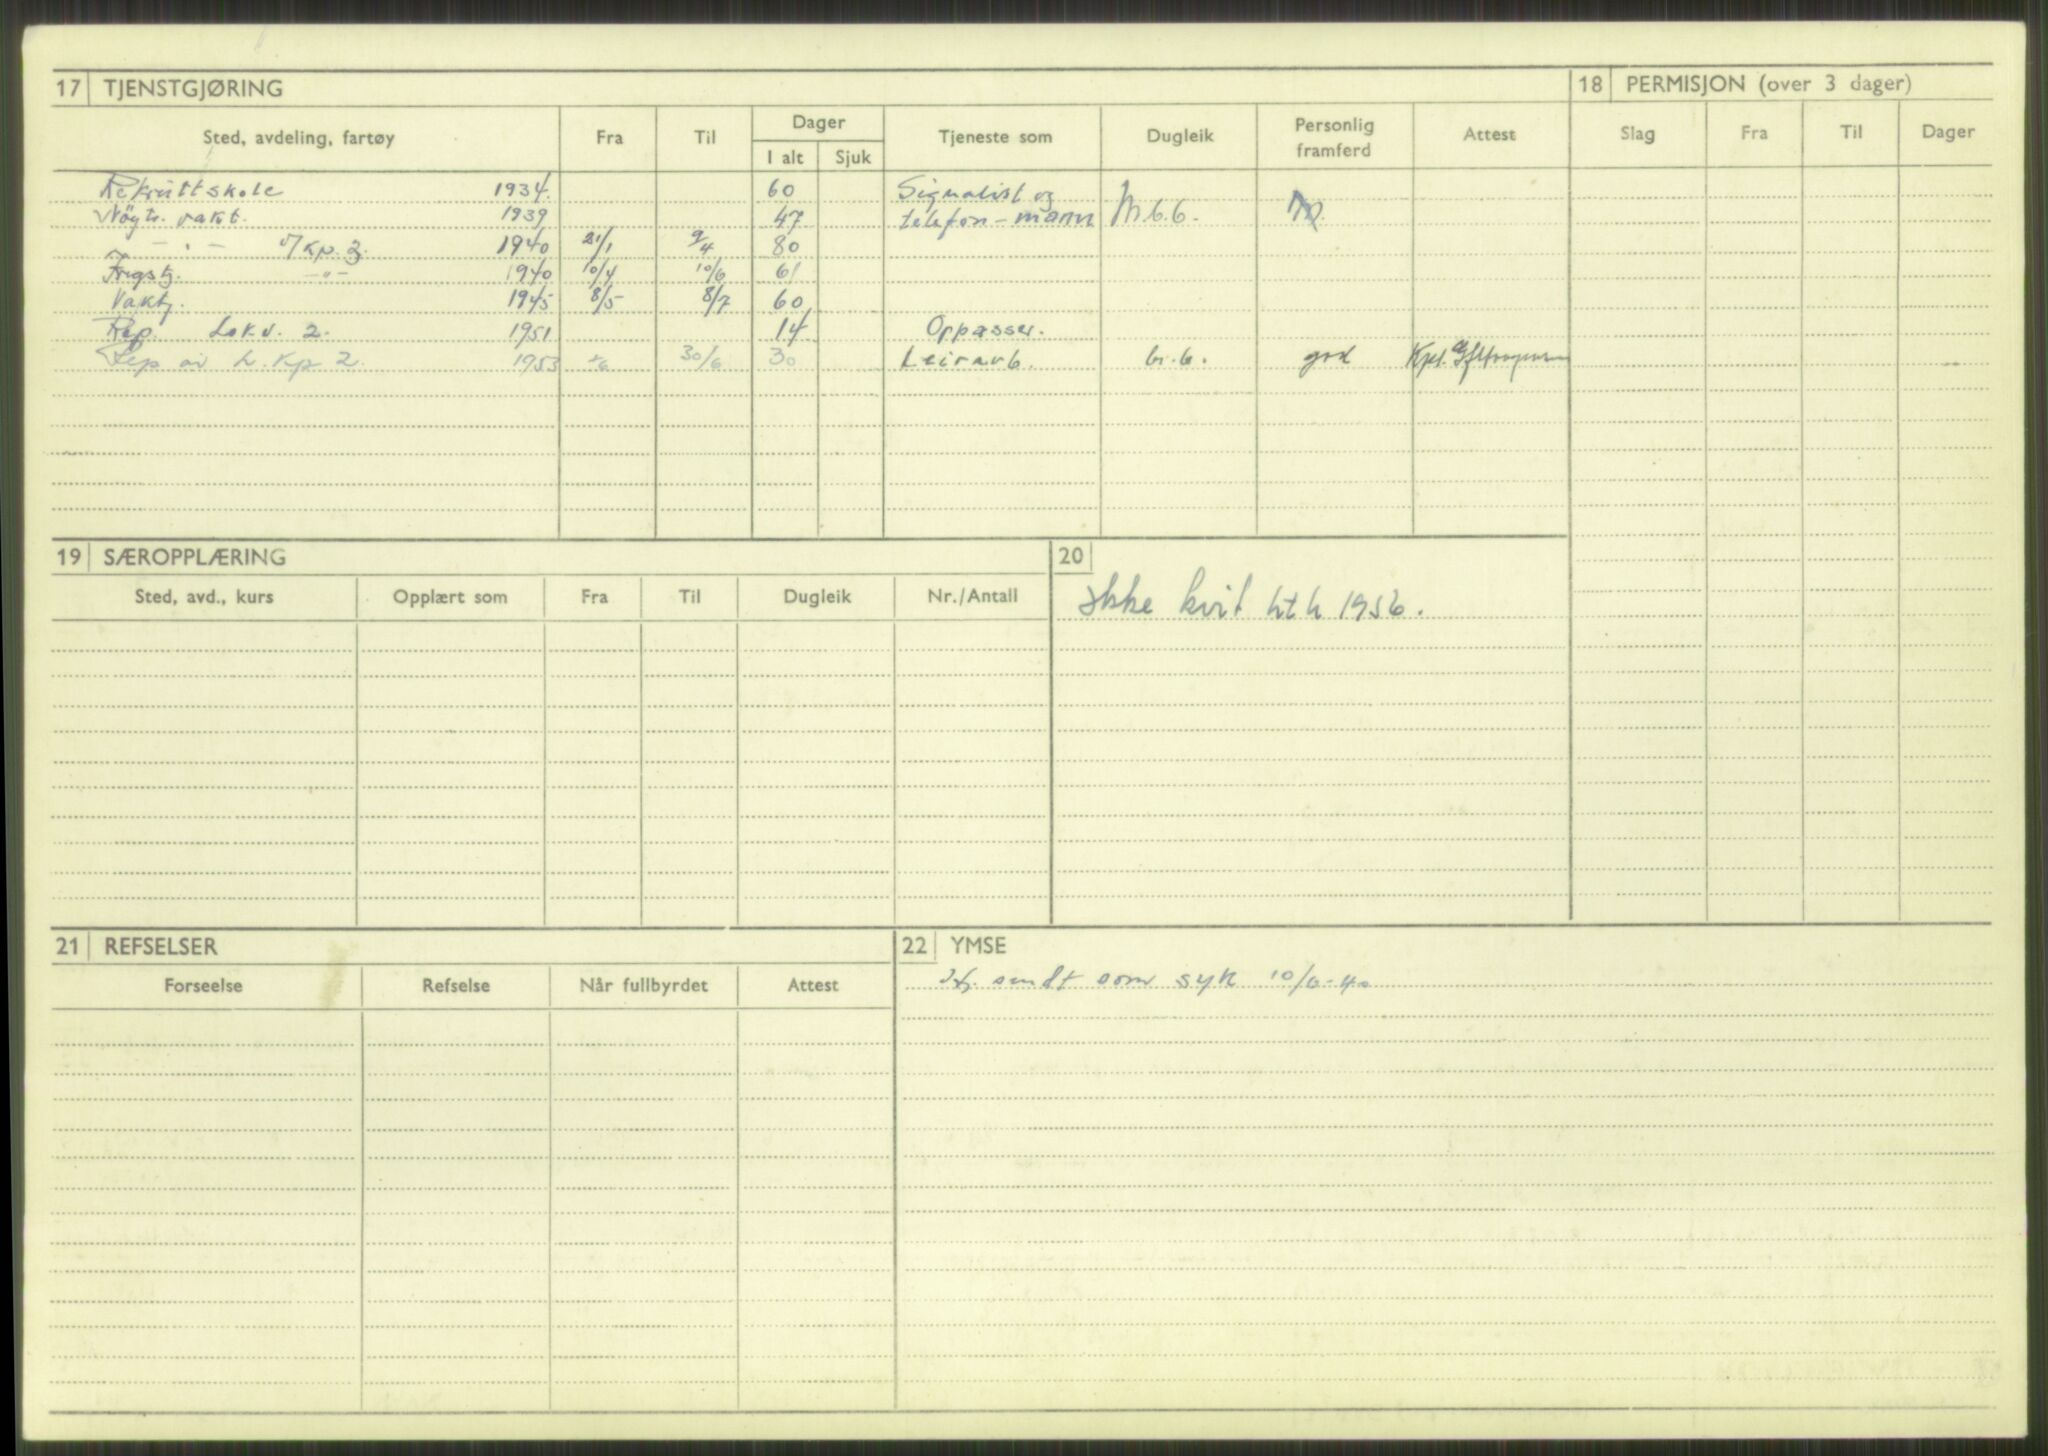 17 TJENSTGJØRING
18 PERMISJON (over 3 dager)
Sted, avdeling, fartøy Fra Til Dager Tjeneste som Dugleik Personlig framferd Attest Slag Fra Til Dager
I alt Sjuk
Rekruttskole 1934. 60 Signalist og
Nøytr. vakt. 1939 47 telefon-mann M.b.b. M.
- " - v/Kp. 3. 1940 21/1 9/4 80
Krigstj. -"- 1940 10/4 10/6 61
Vaktj. 1945 8/5 8/7 60
Rep. Lok.v. 2. 1951 14 Oppasser.
Rep av L. Kp 2. 1953 30/6 30 Leirarb. b.b. god Kpt.
19 SÆROPPLÆRING
20
Sted, avd., kurs Opplært som Fra Til Dugleik Nr./Antall
Ikke kvit 1956.
21 REFSELSER
22 YMSE
Forseelse Refselse Når fullbyrdet Attest
sendt som syk 10/6-40